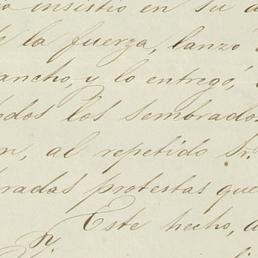 insistió en su
de la fuerza, lanzó
ancho, y lo entregó,
odos los sembrado
n, al repetido Sr.
radas protestas que
Este hecho, a